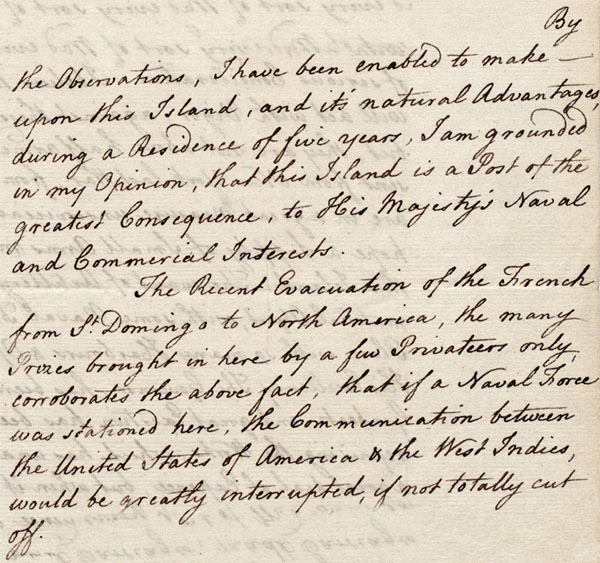 By
the Observations, I have been enabled to make —
upon this Island, and it's natural Advantages,
during a Residence of five years, I am grounded
in my Opinion, that this Island is a Post of the
greatest Consequence, to His Majesty's Naval
and Commercial Interests.
The Recent Evacuation of the French
from St. Domingo to North America, the many
Prizes brought in here by a few Privateers only,
corroborates the above fact, that if a Naval Force
was stationed here, the Communication between
the United States of America & the West Indies,
would be greatly interrupted, if not totally cut
off.